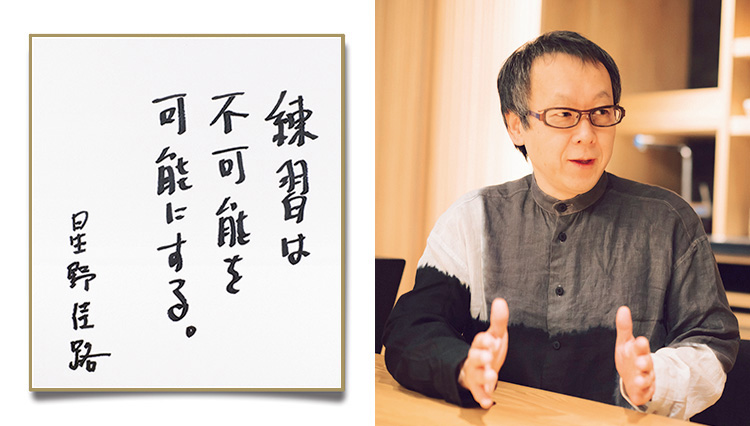 練習は
不可能を
可能にする。
星野佳路